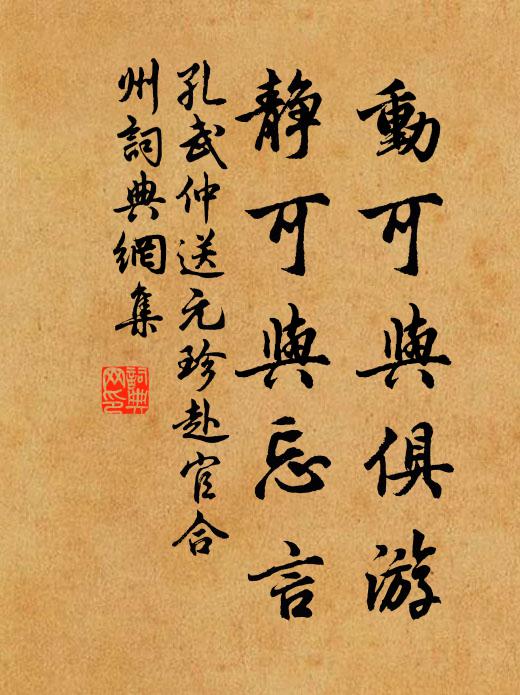 動可與俱游
静可與忘言
孔武仲送元珍赴官合
州詞典網集
詞典
网印